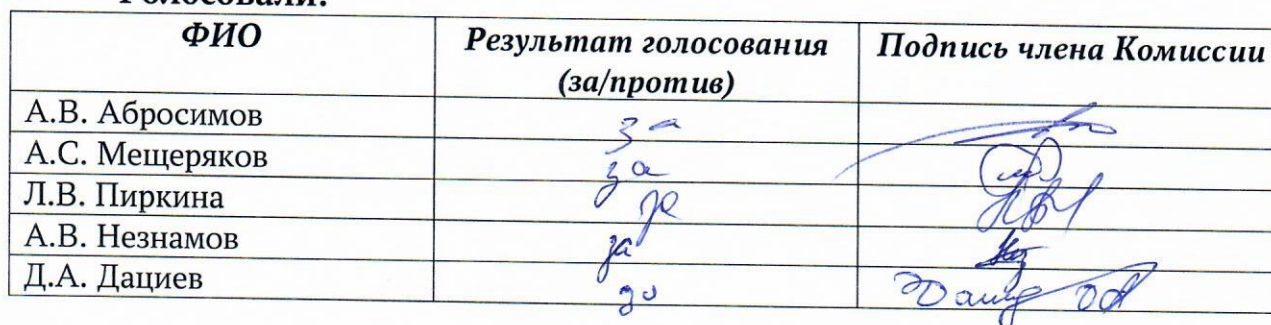 Голосовали:
ФИО Результат голосования Подпись члена Комиссии
(за/против)
А.В. Абросимов за
А.С. Мещеряков за
Л.В. Пиркина за
А.В. Незнамов за
Д.А. Дациев за